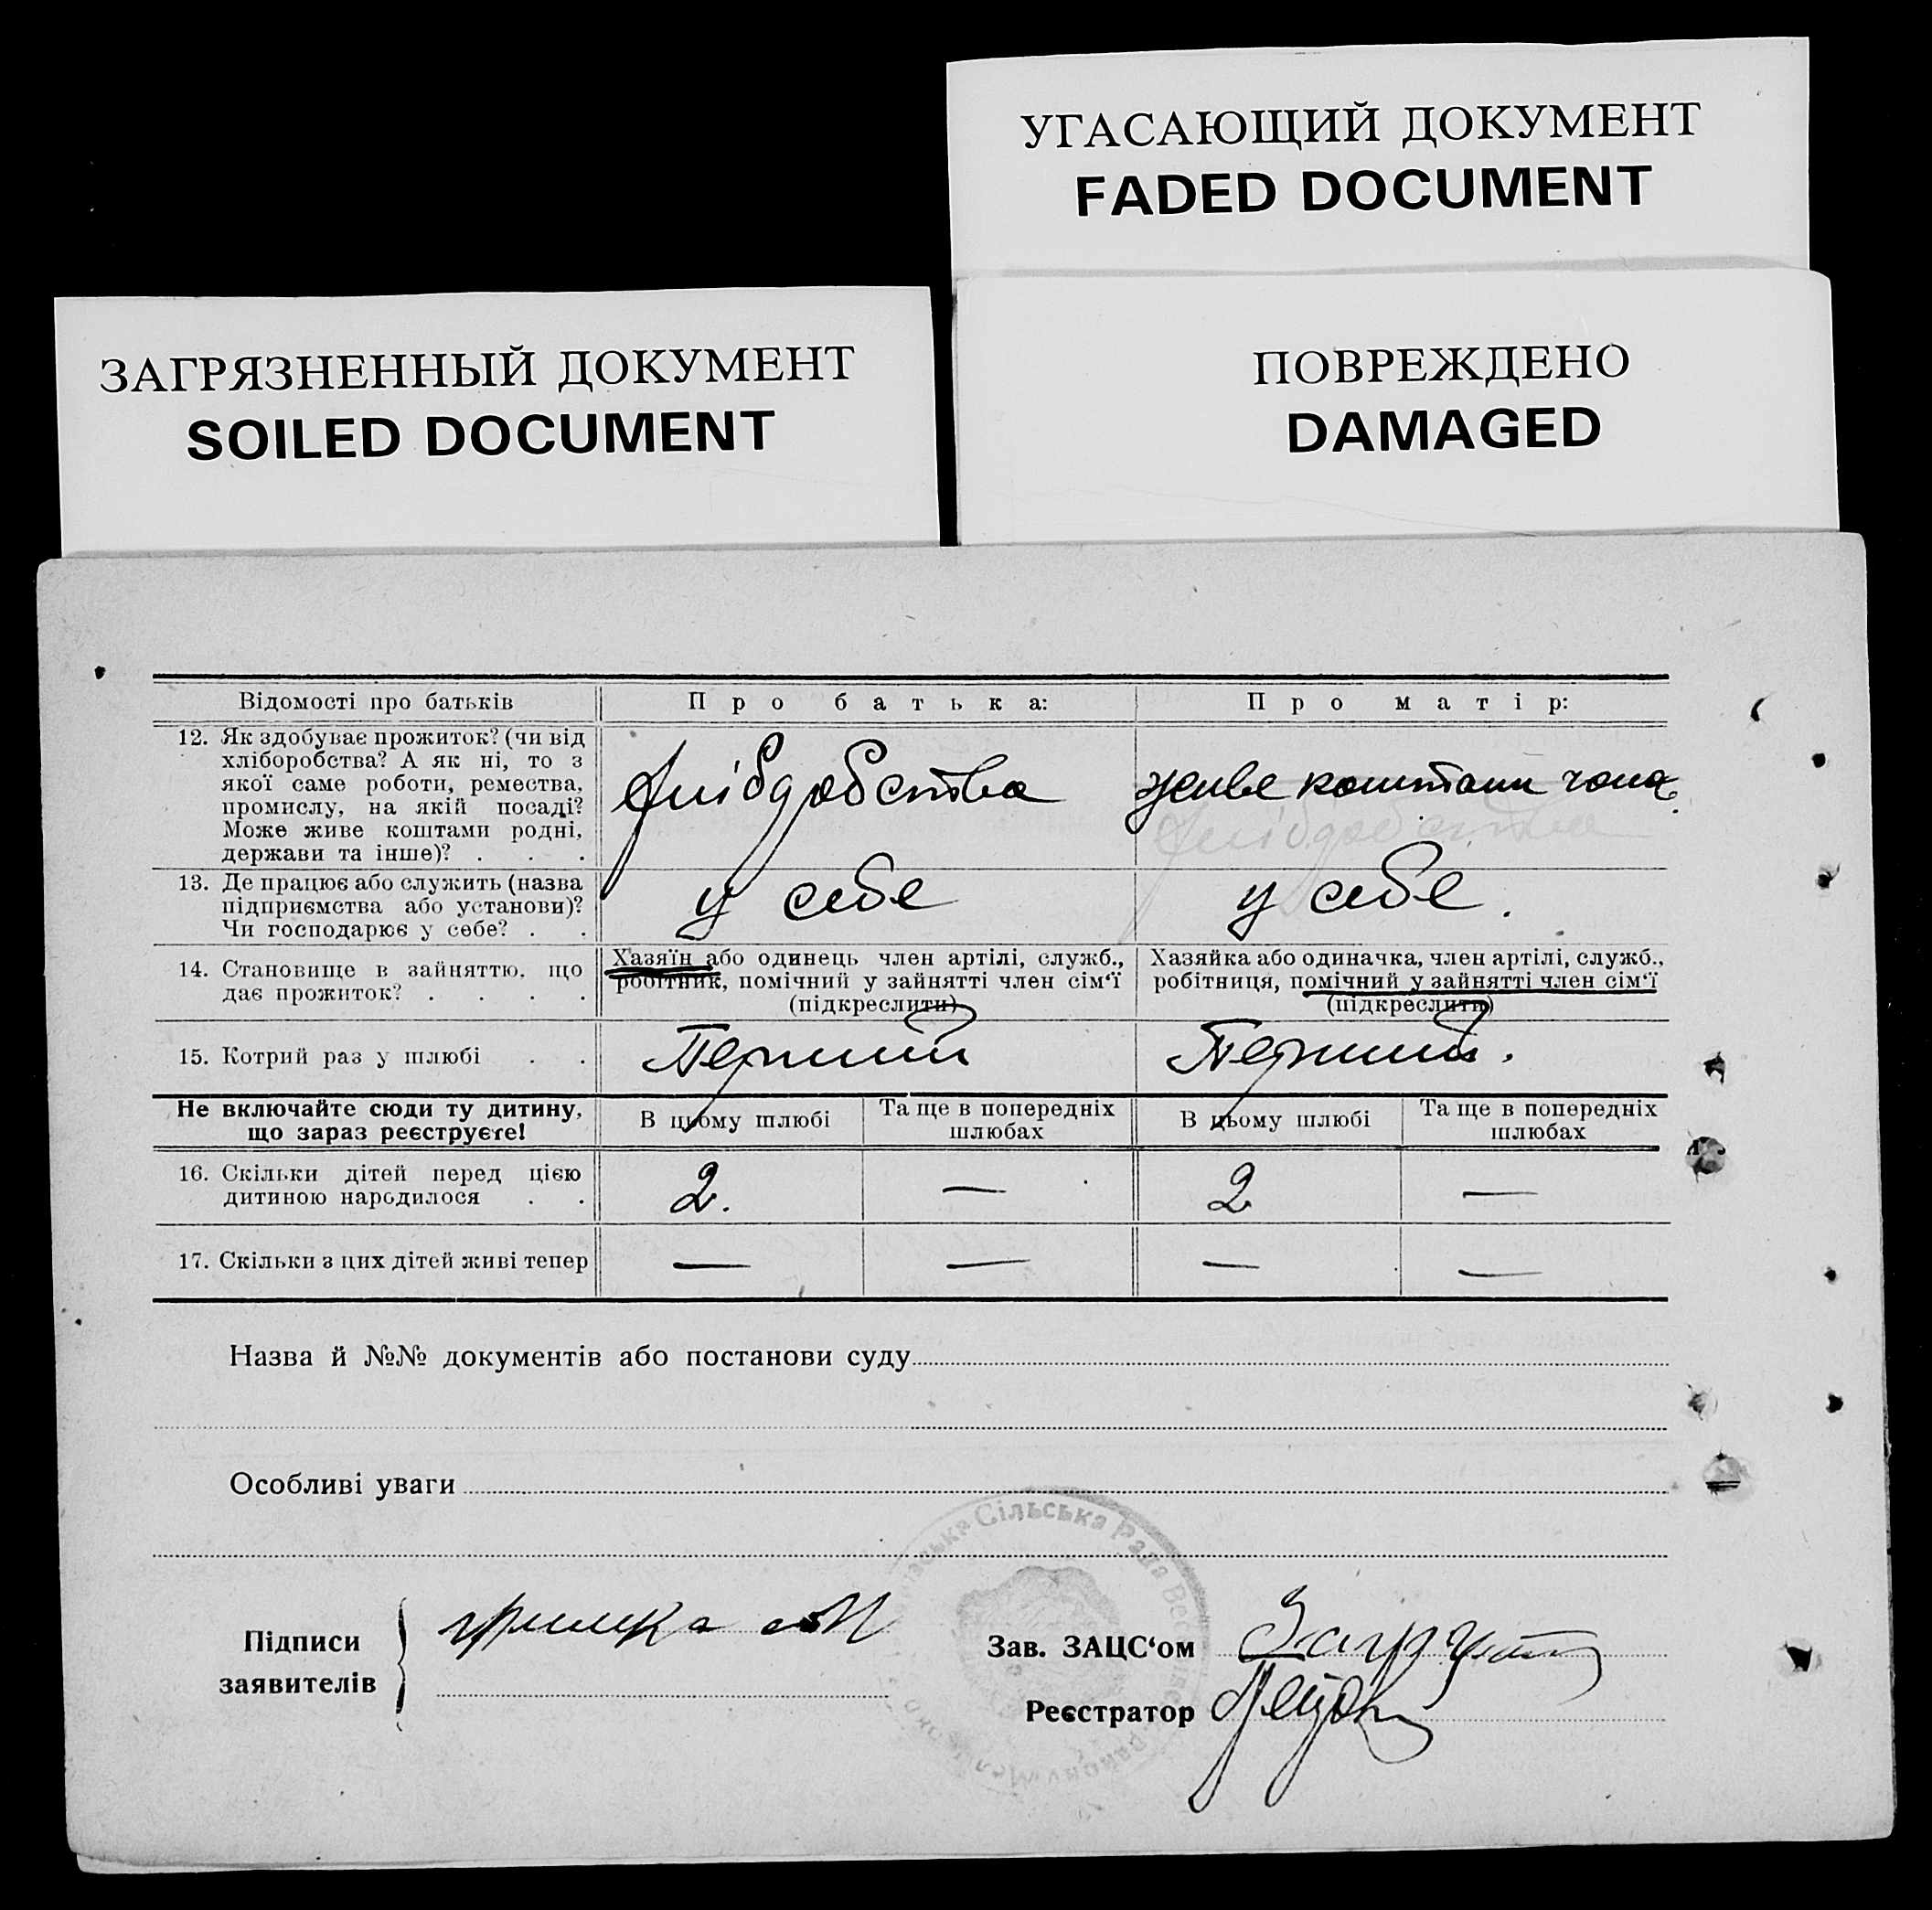 УГАСАЮЩИЙ ДОКУМЕНТ
FADED DOCUMENT
ЗАГРЯЗНЕННЫЙ ДОКУМЕНТ
SOILED DOCUMENT
ПОВРЕЖДЕНО
DAMAGED
Відомості про батьків
Про батька:
Про матір:
12. Як здобуває прожиток? (чи від
хліборобства? А як ні, то з
якої саме роботи, ремества,
промислу, на якій посаді?
Може живе коштами родні,
держави та інше)? . . .
живе коштами чолов.
13. Де працює або служить (назва
підприємства або установи)?
Чи господарює у себе? . .
у себе
у себе.
14. Становище в зайняттю, що
дає прожиток? . . . .
Хазяїн або одинець член артілі, служб.,
робітник, помічний у зайнятті член сім‘ї
(підкреслити)
Хазяйка або одиначка, член артілі, служб.,
робітниця, помічний у зайнятті член сім‘ї
(підкреслити)
15. Котрий раз у шлюбі . .
Перший
Перший.
Не включайте сюди ту дитину,
що зараз реєструєте!
В цьому шлюбі
Та ще в попередніх
шлюбах
В цьому шлюбі
Та ще в попередніх
шлюбах
16. Скільки дітей перед цією
дитиною народилося . .
2.
—
2
—
17. Скільки з цих дітей живі тепер
—
—
—
—
Назва й №№ документів або постанови суду
Особливі уваги
Сільська Рада
Підписи
заявителів
Зав. ЗАЦС‘ом
Реєстратор